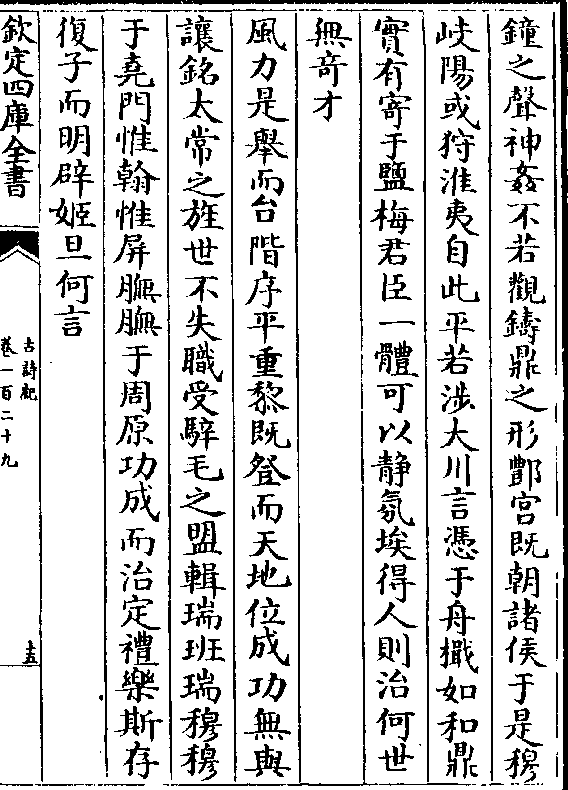 鐘之聲神姦不若觀鑄鼎之形酆宮既朝諸侯于是穆
岐陽或狩淮夷自此平若涉大川言憑于舟檝如和鼎
實有寄于鹽梅君臣一體可以静氛埃得人則治何世
無奇才
風力是舉而台階序平重黎既登而天地位成功無與
讓銘太常之旌世不失職受騂毛之盟輯瑞班瑞穆穆
于堯門惟翰惟屏膴膴于周原功成而治定禮樂斯存
復子而明辟姬旦何言
欽定四庫全書
古詩紀
卷一百二十九
十五